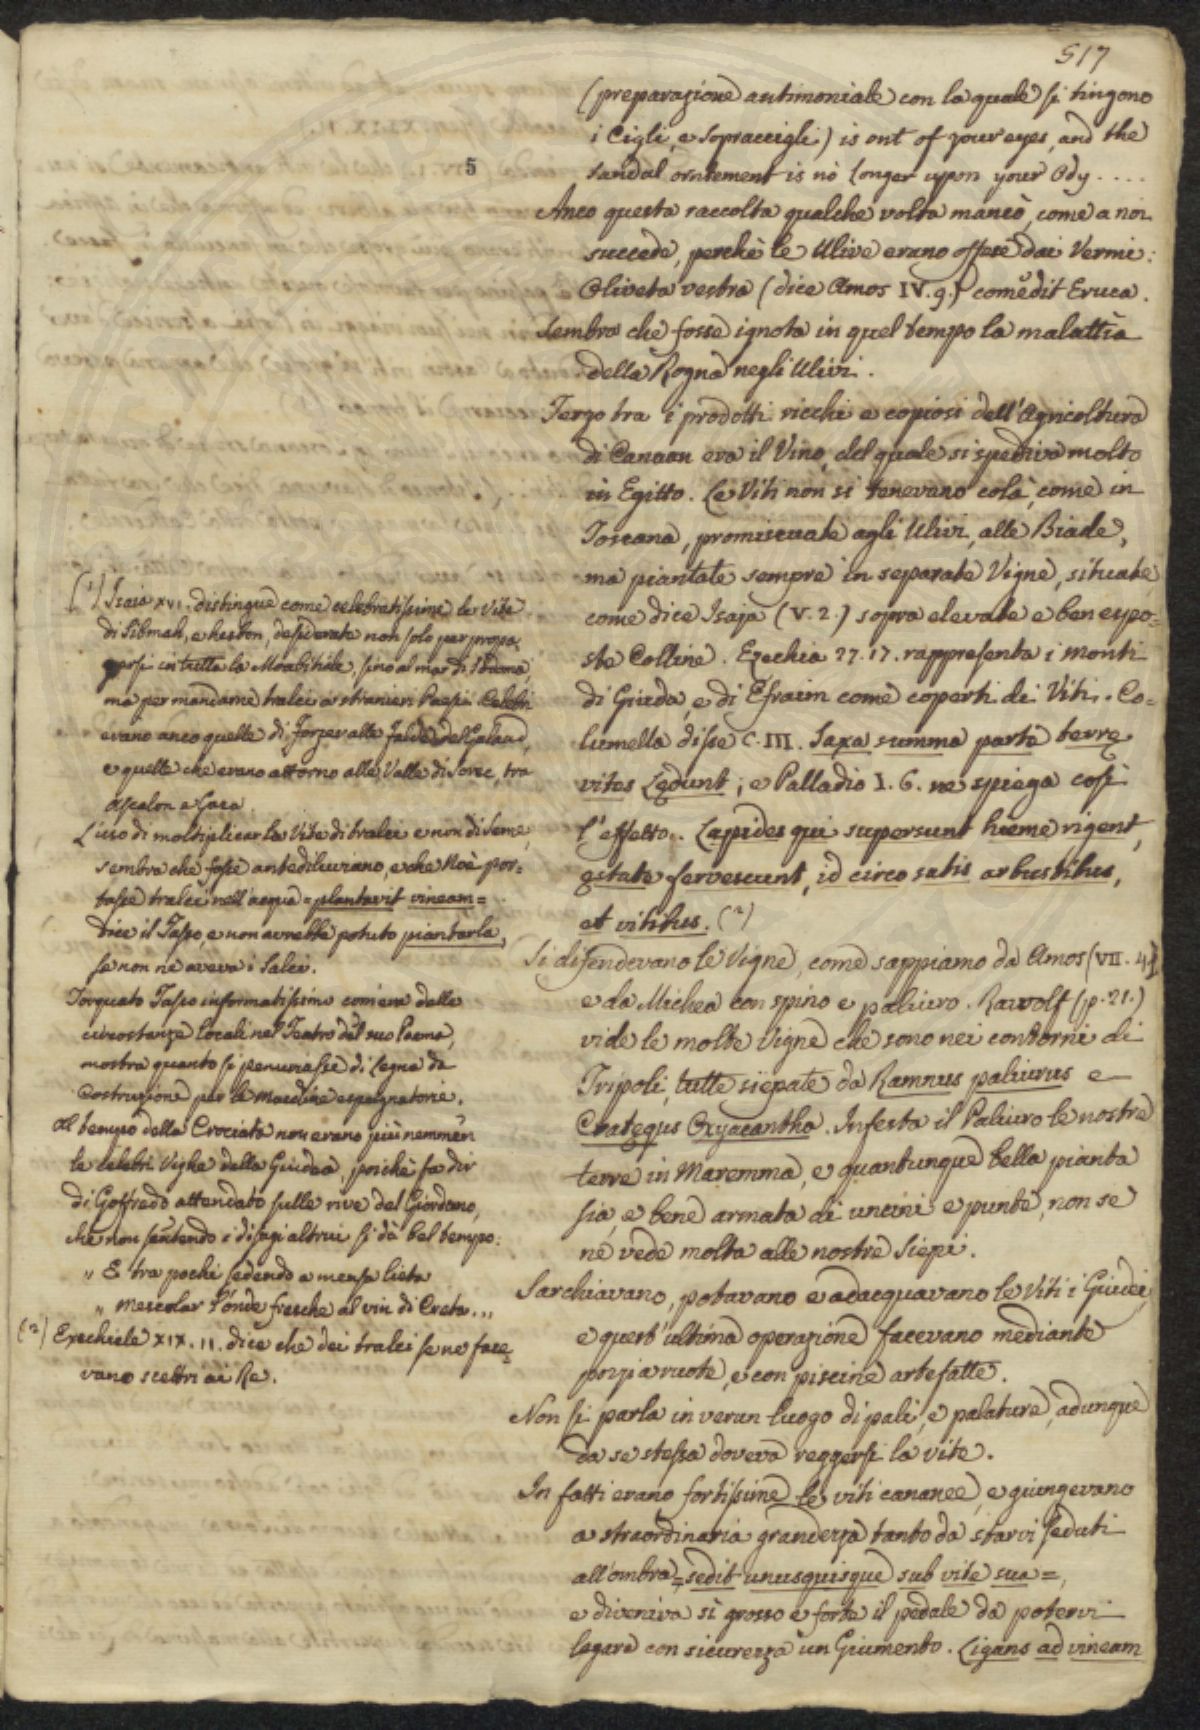 517
(preparazione antimoniale con la quale si tingono
i Cigli, e Sopraccigli) is out of your eyes, and the
sandal ornement is no longer upon your Ody....
5
Anco questa raccolta qualche volta mancò, come a noi
succede, perchè le Ulive erano offese dai Vermi:
Oliveta vestra (dice Amos IV. 9.) comedit Eruca.
Sembra che fosse ignota in quel tempo la malattia
della Rogna negli Ulivi.
Terzo tra i prodotti ricchi e copiosi dell'Agricoltura
di Canaan era il Vino, del quale si spediva molto
in Egitto. Le Viti non si tenevano colà, come in
Toscana, promiscuate agli Ulivi, alle Biade,
ma piantate sempre in separate Vigne, situate
come dice Isaja (V. 2.) sopra elevate e ben espo=
ste Colline. Ezechia 27. 17. rappresenta i monti
di Giuda, e di Efraim come coperti di Viti. Co=
lumella disse C. III. Saxa summa parte terrę
vites Lędunt; e Palladio I. 6. ne spiega così
l'effetto. Lapides qui supersunt hieme rigent,
ęstate fervescunt, id circo satis arbustibus,
et vitibus. (2)
Si difendevano le Vigne, come sappiamo da Amos (VII. 4)
e da Michea con spino e paliuro. Rawolf (p. 21.)
vide le molte Vigne che sono nei contorni di
Tripoli, tutte siepate da Ramnus paliurus e
Cratęgus Oxyacantha. Infesta il Paliuro le nostre
terre in Maremma, e quantunque bella pianta
sia, e bene armata di uncini e punte, non se
ne vede molta alle nostre Siepi.
Sarchiavano, potavano e adacquavano le Viti i Giudei,
e quest'ultima operazione facevano mediante
pozzi a ruote, e con piscine artefatte.
Non si parla in verun luogo di pali, e palature, adunque
da se stessa doveva reggersi la vite.
In fatti erano fortissime le viti cananee, e giungevano
a straordinaria grandezza tanto da starvi seduti
all'ombra = sedit unusquisque sub vite sua =,
e diveniva sì grosso e forte il pedale da potervi
legare con sicurezza un Giumento. Ligans ad vineam
(1) Isaia XVI. distingue come celebratissime le Vite
di Sibmah, e hesbon, desiderate non solo per propa=
garsi in tutta la Moabitide, sino al mar di
ma per mandarne tralci a stranieri Paesi. Celebri
erano anco quelle di Jazer alle falde del Galaad,
e quelle che erano attorno alla Valle di Sorec, tra
Ascalon e Gaza.
L'uso di moltiplicar la Vite di tralci e non di Seme,
sembra che fosse antediluviano, e che Noè por=
tasse tralci nell'acqua = plantavit vineam =
dice il Tasso, e non avrebbe potuto piantarla,
se non ne aveva i Salci.
Torquato Tasso informatissimo com'era delle
circostanze locali nel Teatro del suo Poema,
mostra quanto si penuriasse di Legna da
Costruzione per le Macchine espugnatorie.
Al tempo della Crociata non erano più nemmen
le celebri Vigne della Giudea, poichè fa dir
di Goffredo attendato sulle rive del Giordano,
che non sentendo i disagi altrui si dà bel tempo.
" E tra pochi sedendo a mensa lieta
" mescolar l'onde fresche al vin di Creta...
(2) Ezechiele XIX. 11. dice che dei tralci se ne face=
vano scettri ai Re.